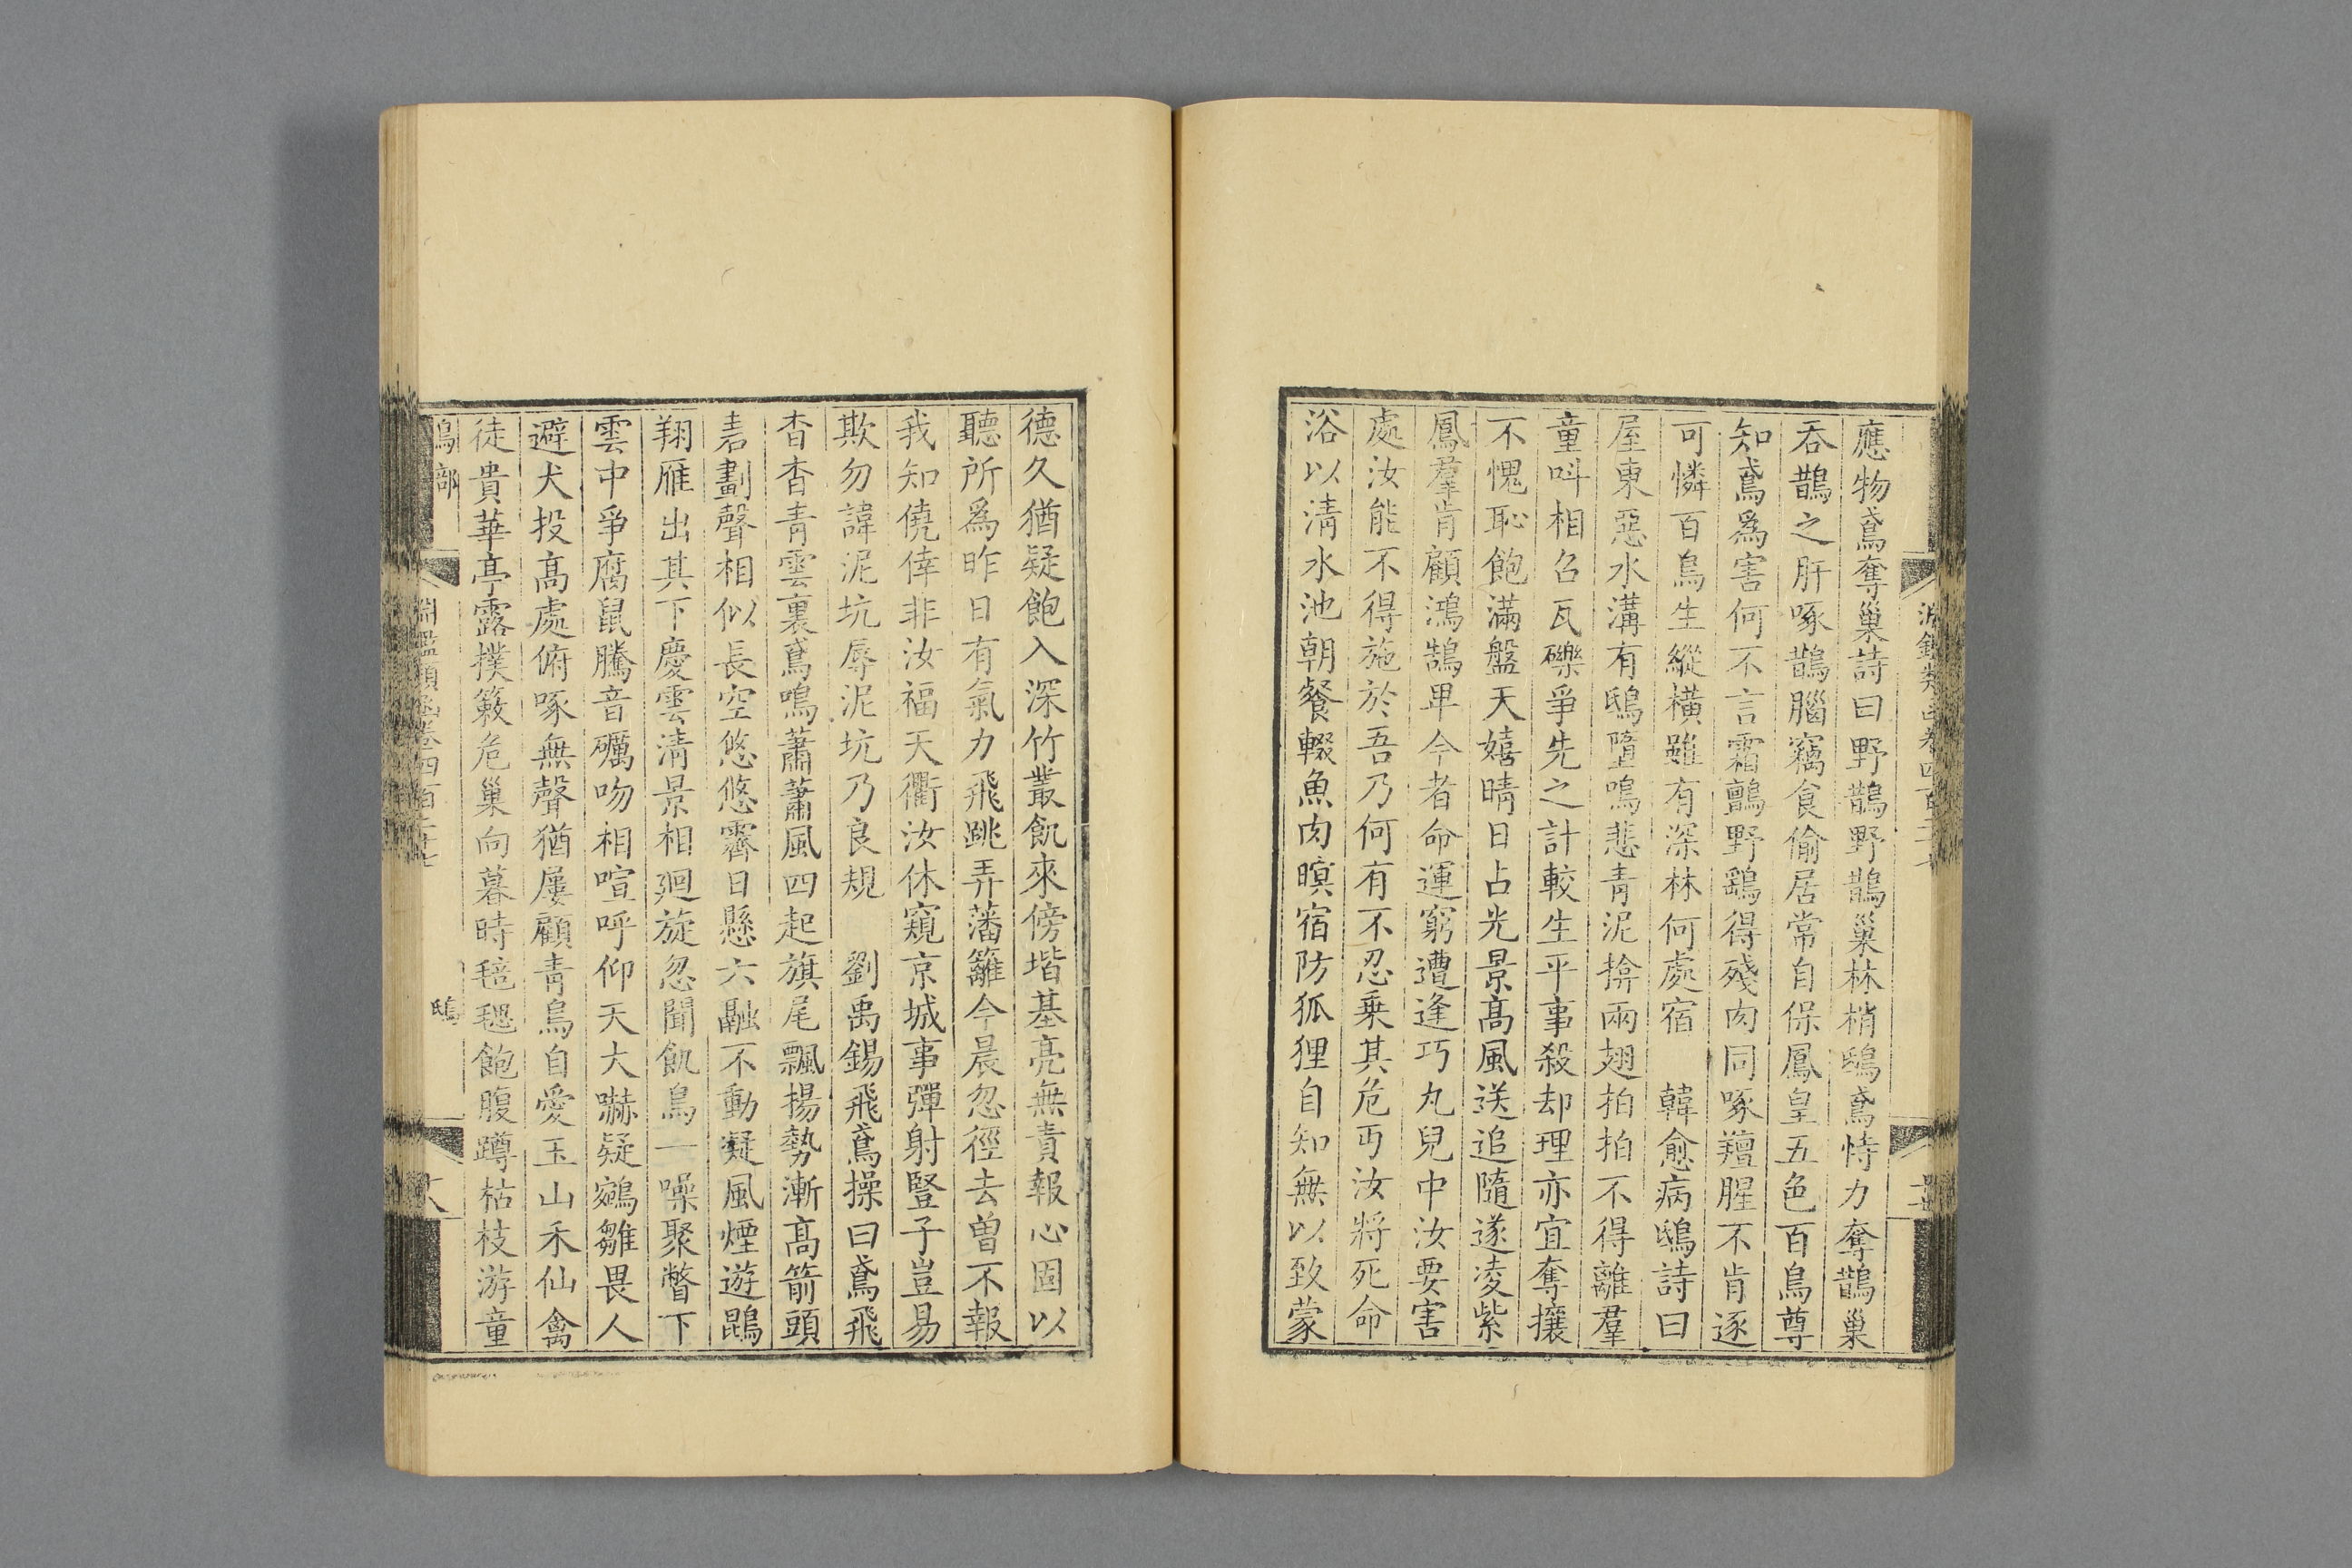 應物鳶奪巢詩曰野鵲野鵲巢林梢鴟鳶恃力奪鵲巢
吞鵲之肝啄鵲腦竊食偷居常自保鳳皇五色百鳥尊
知鳶爲害何不言霜鸇野鷂得殘肉同啄羶腥不肯逐
可憐百鳥生縱橫雖有深林何處宿　韓愈病鴟詩曰
屋東惡水溝有鴟墮鳴悲青泥揜兩翅拍拍不得離羣
童呌相召瓦礫爭先之計較生平事殺却理亦宜奪攘
不愧恥飽滿盤天嬉晴日占光景髙風送追隨遂凌紫
鳳羣肯顧鴻鵠卑今者命運窮遭逢巧丸兒中汝要害
處汝能不得施於吾乃何有不忍乗其危丐汝將死命
浴以清水池朝餐輟魚肉暝宿防狐狸自知無以致蒙
德久猶疑飽入深竹叢飢來傍堦基亮無責報心固以
聽所爲昨日有氣力飛跳弄藩籬今晨忽徑去曾不報
我知僥倖非汝福天衢汝休窺京城事彈射豎子豈易
欺勿諱泥坑辱泥坑乃良規　劉禹錫飛鳶操曰鳶飛
杳杳青雲裏鳶鳴蕭蕭風四起旗尾飄揚勢漸髙箭頭
砉劃聲相似長空悠悠霽日懸六翮不動凝風煙遊鵾
翔雁出其下慶雲清景相廻旋忽聞飢烏一噪聚瞥下
雲中爭腐鼠騰音礪吻相喧呼仰天大嚇疑鵷雛畏人
避犬投髙處俯啄無聲猶屢顧青鳥自愛玉山禾仙禽
徒貴華亭露撲簌危巢向暮時毰毸飽腹蹲枯枝游童
鳥部
淵鑑類函卷四百二十七
鴟